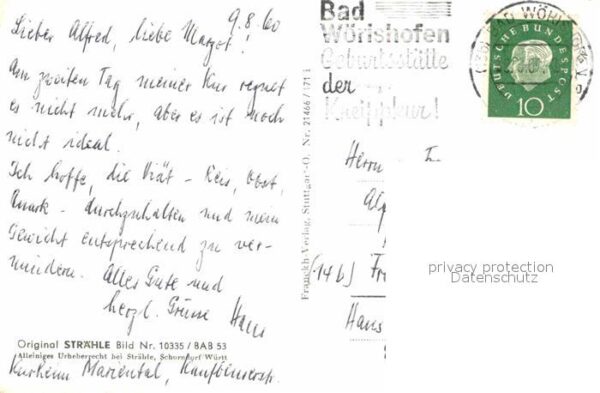 9.8.60
Lieber Alfred, liebe Margot!
Am zweiten Tag meiner Kur regnet
es nicht mehr, aber es ist noch
nicht ideal.
Ich hoffe, die Diät - Reis, Obst,
Quark - durchzuhalten und mein
Gewicht entsprechend zu ver-
mindern. Alles Gute und
herzl. Grüsse Hans
Original STRÄHLE Bild Nr. 10335 / BAB 53
Alleiniges Urheberrecht bei Strähle, Schorndorf/Württ
Kurheim Mariental, Kaufbeurerstr.
Franckh-Verlag, Stuttgart-O. Nr. 21466 / 171 i
Bad
Wörishofen
Geburtsstätte
der
Kneippkur!
BAD WÖRISHOFEN
DEUTSCHE BUNDESPOST
10
Herrn
(14b) Fr
Hans
privacy protection
Datenschutz